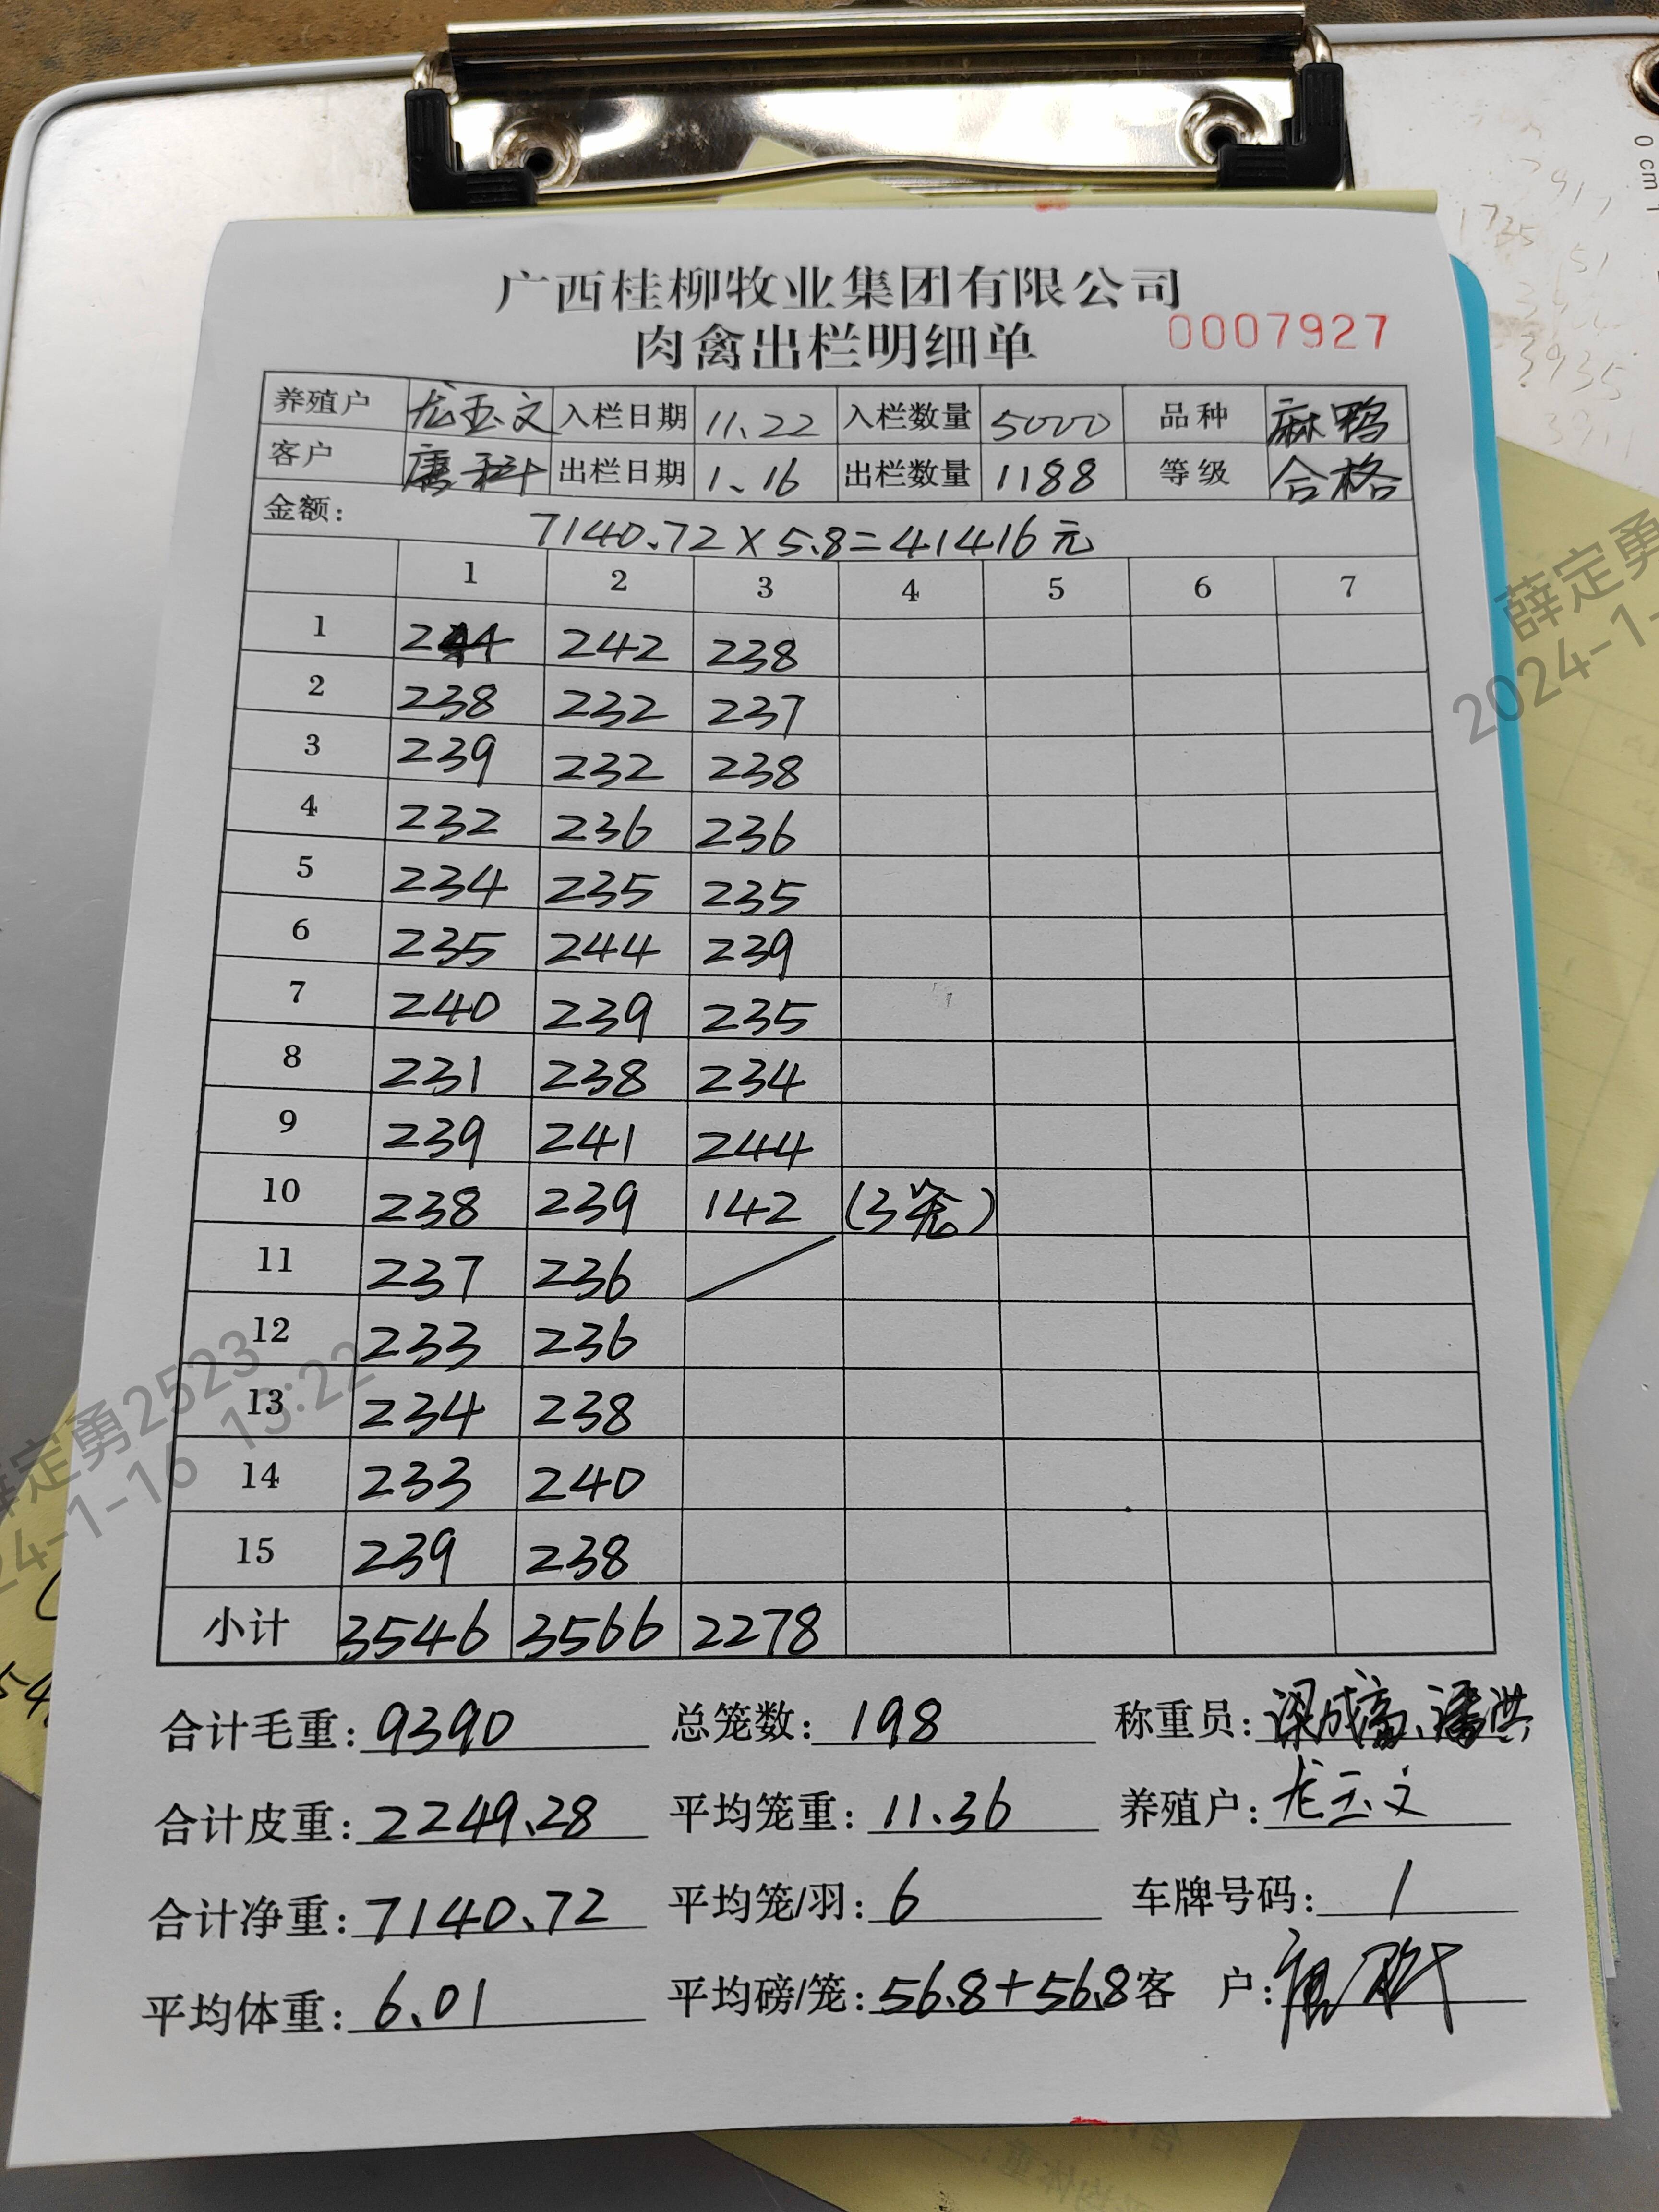 广西桂柳牧业集团有限公司
肉禽出栏明细单 0007927
养殖户 龙玉文 入栏日期 11.22 入栏数量 5000 品种 麻鸭
客户 唐科 出栏日期 1.16 出栏数量 1188 等级 合格
金额: 7140.72×5.8=41416元
1 2 3 4 5 6 7
1 244 242 238
2 238 232 237
3 239 232 238
4 232 236 236
5 234 235 235
6 235 244 239
7 240 239 235
8 231 238 234
9 239 241 244
10 238 239 142 (3笼)
11 237 236
12 233 236
13 234 238
14 233 240
15 239 238
小计 3546 3566 2278
合计毛重: 9390 总笼数: 198 称重员: 梁成富、潘洪
合计皮重: 2249.28 平均笼重: 11.36 养殖户: 龙玉文
合计净重: 7140.72 平均笼/羽: 6 车牌号码: 1
平均体重: 6.01 平均磅/笼: 56.8+56.8 客 户:
薛定勇
2024-1-
薛定勇2523
24-1-16 13:22
0 cm 1
1735
3935